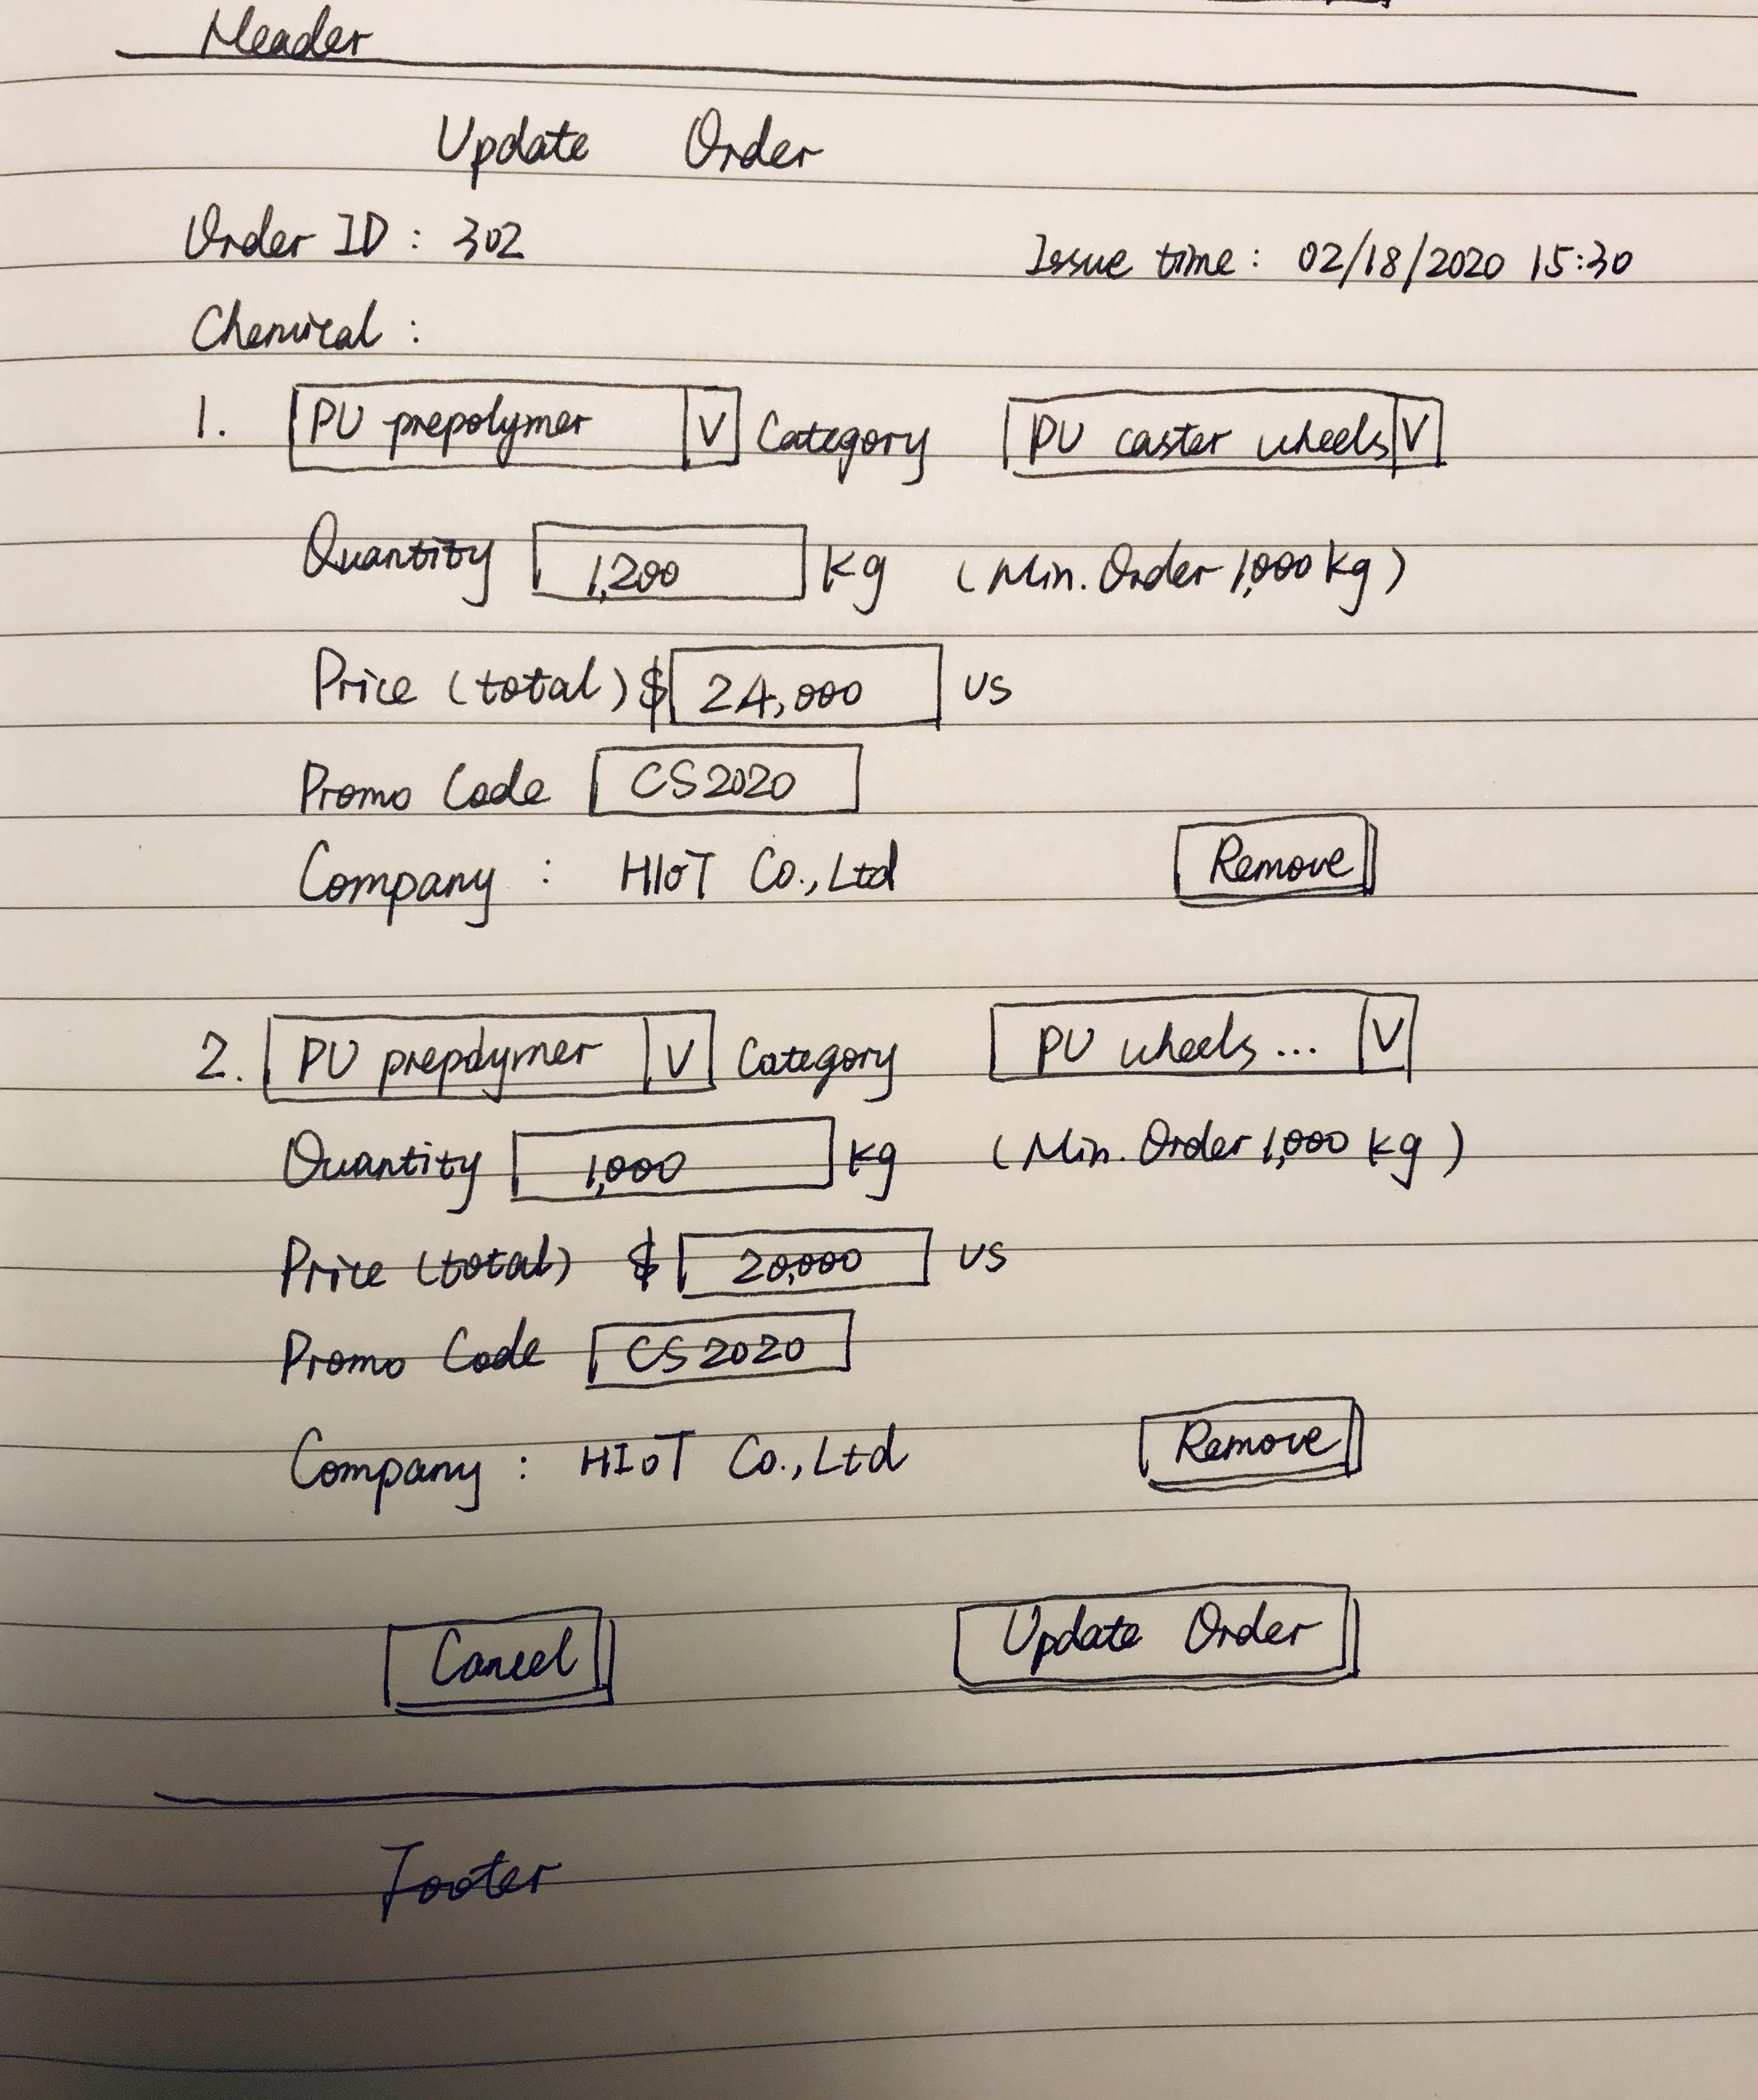 Header
Update Order
Order ID : 302 Issue time : 02/18/2020 15:30
Chemical :
1. PU prepolymer V Category PU caster wheels V
Quantity 1,200 kg (Min. Order 1,000 kg)
Price (total) $ 24,000 US
Promo Code CS2020
Company : HIoT Co., Ltd Remove
2. PU prepolymer V Category PU wheels ... V
Quantity 1,000 kg (Min. Order 1,000 kg)
Price (total) $ 20,000 US
Promo Code CS2020
Company : HIoT Co., Ltd Remove
Cancel Update Order
Footer